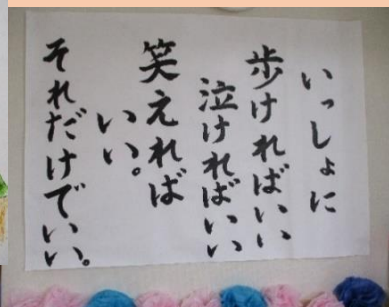 いっしょに
歩ければいい
泣ければいい
笑えれば
いい。
それだけでいい。